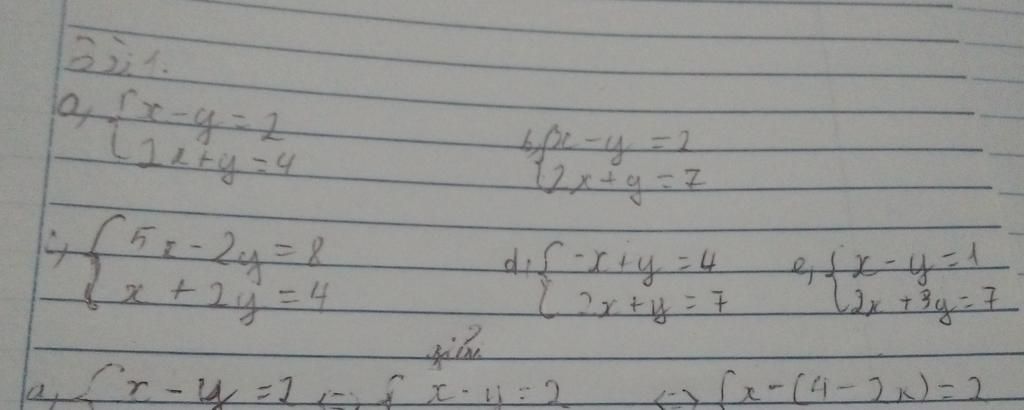 Bài 1.
a, { x - y = 2
2x + y = 4
b, { x - y = 2
2x + y = 7
c, { 5x - 2y = 8
x + 2y = 4
d, { -x + y = 4
2x + y = 7
e, { x - y = 1
2x + 3y = 7
giải
a, { x - y = 2 <=> { x - y = 2 <=> { x - (4 - 2x) = 2